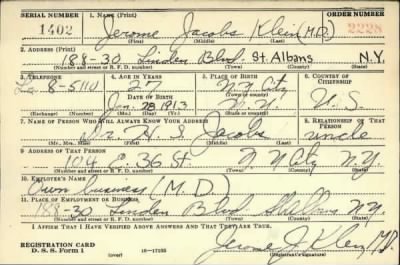 SERIAL NUMBER 1. NAME (Print) ORDER NUMBER
1402 Jerome Jacobs Klein (M.D.) 2228
(First) (Middle) (Last)
2. ADDRESS (Print)
188-30 Linden Blvd. St. Albans N.Y.
(Number and street or R. F. D. number) (Town) (County) (State)
3. TELEPHONE 4. AGE IN YEARS 5. PLACE OF BIRTH 6. COUNTRY OF CITIZENSHIP
La 8-5110 N.Y. City
DATE OF BIRTH (Town or county)
Jan. 28 1913 N.Y. U.S.
(Mo.) (Day) (Yr.) (State or country)
7. NAME OF PERSON WHO WILL ALWAYS KNOW YOUR ADDRESS 8. RELATIONSHIP OF THAT PERSON
Dr. H. Jacobs uncle
(Mr., Mrs., Miss) (First) (Middle) (Last)
9. ADDRESS OF THAT PERSON
104 E. 36 St N.Y. City N.Y.
(Number and street or R. F. D. number) (Town) (County) (State)
10. EMPLOYER'S NAME
Own business (M.D.)
11. PLACE OF EMPLOYMENT OR BUSINESS
188-30 Linden Blvd St Albans N.Y.
(Number and street or R. F. D. number) (Town) (County) (State)
I AFFIRM THAT I HAVE VERIFIED ABOVE ANSWERS AND THAT THEY ARE TRUE.
REGISTRATION CARD Jerome J. Klein MD.
D. S. S. Form 1 (over) 16-17105 (Registrant's signature)